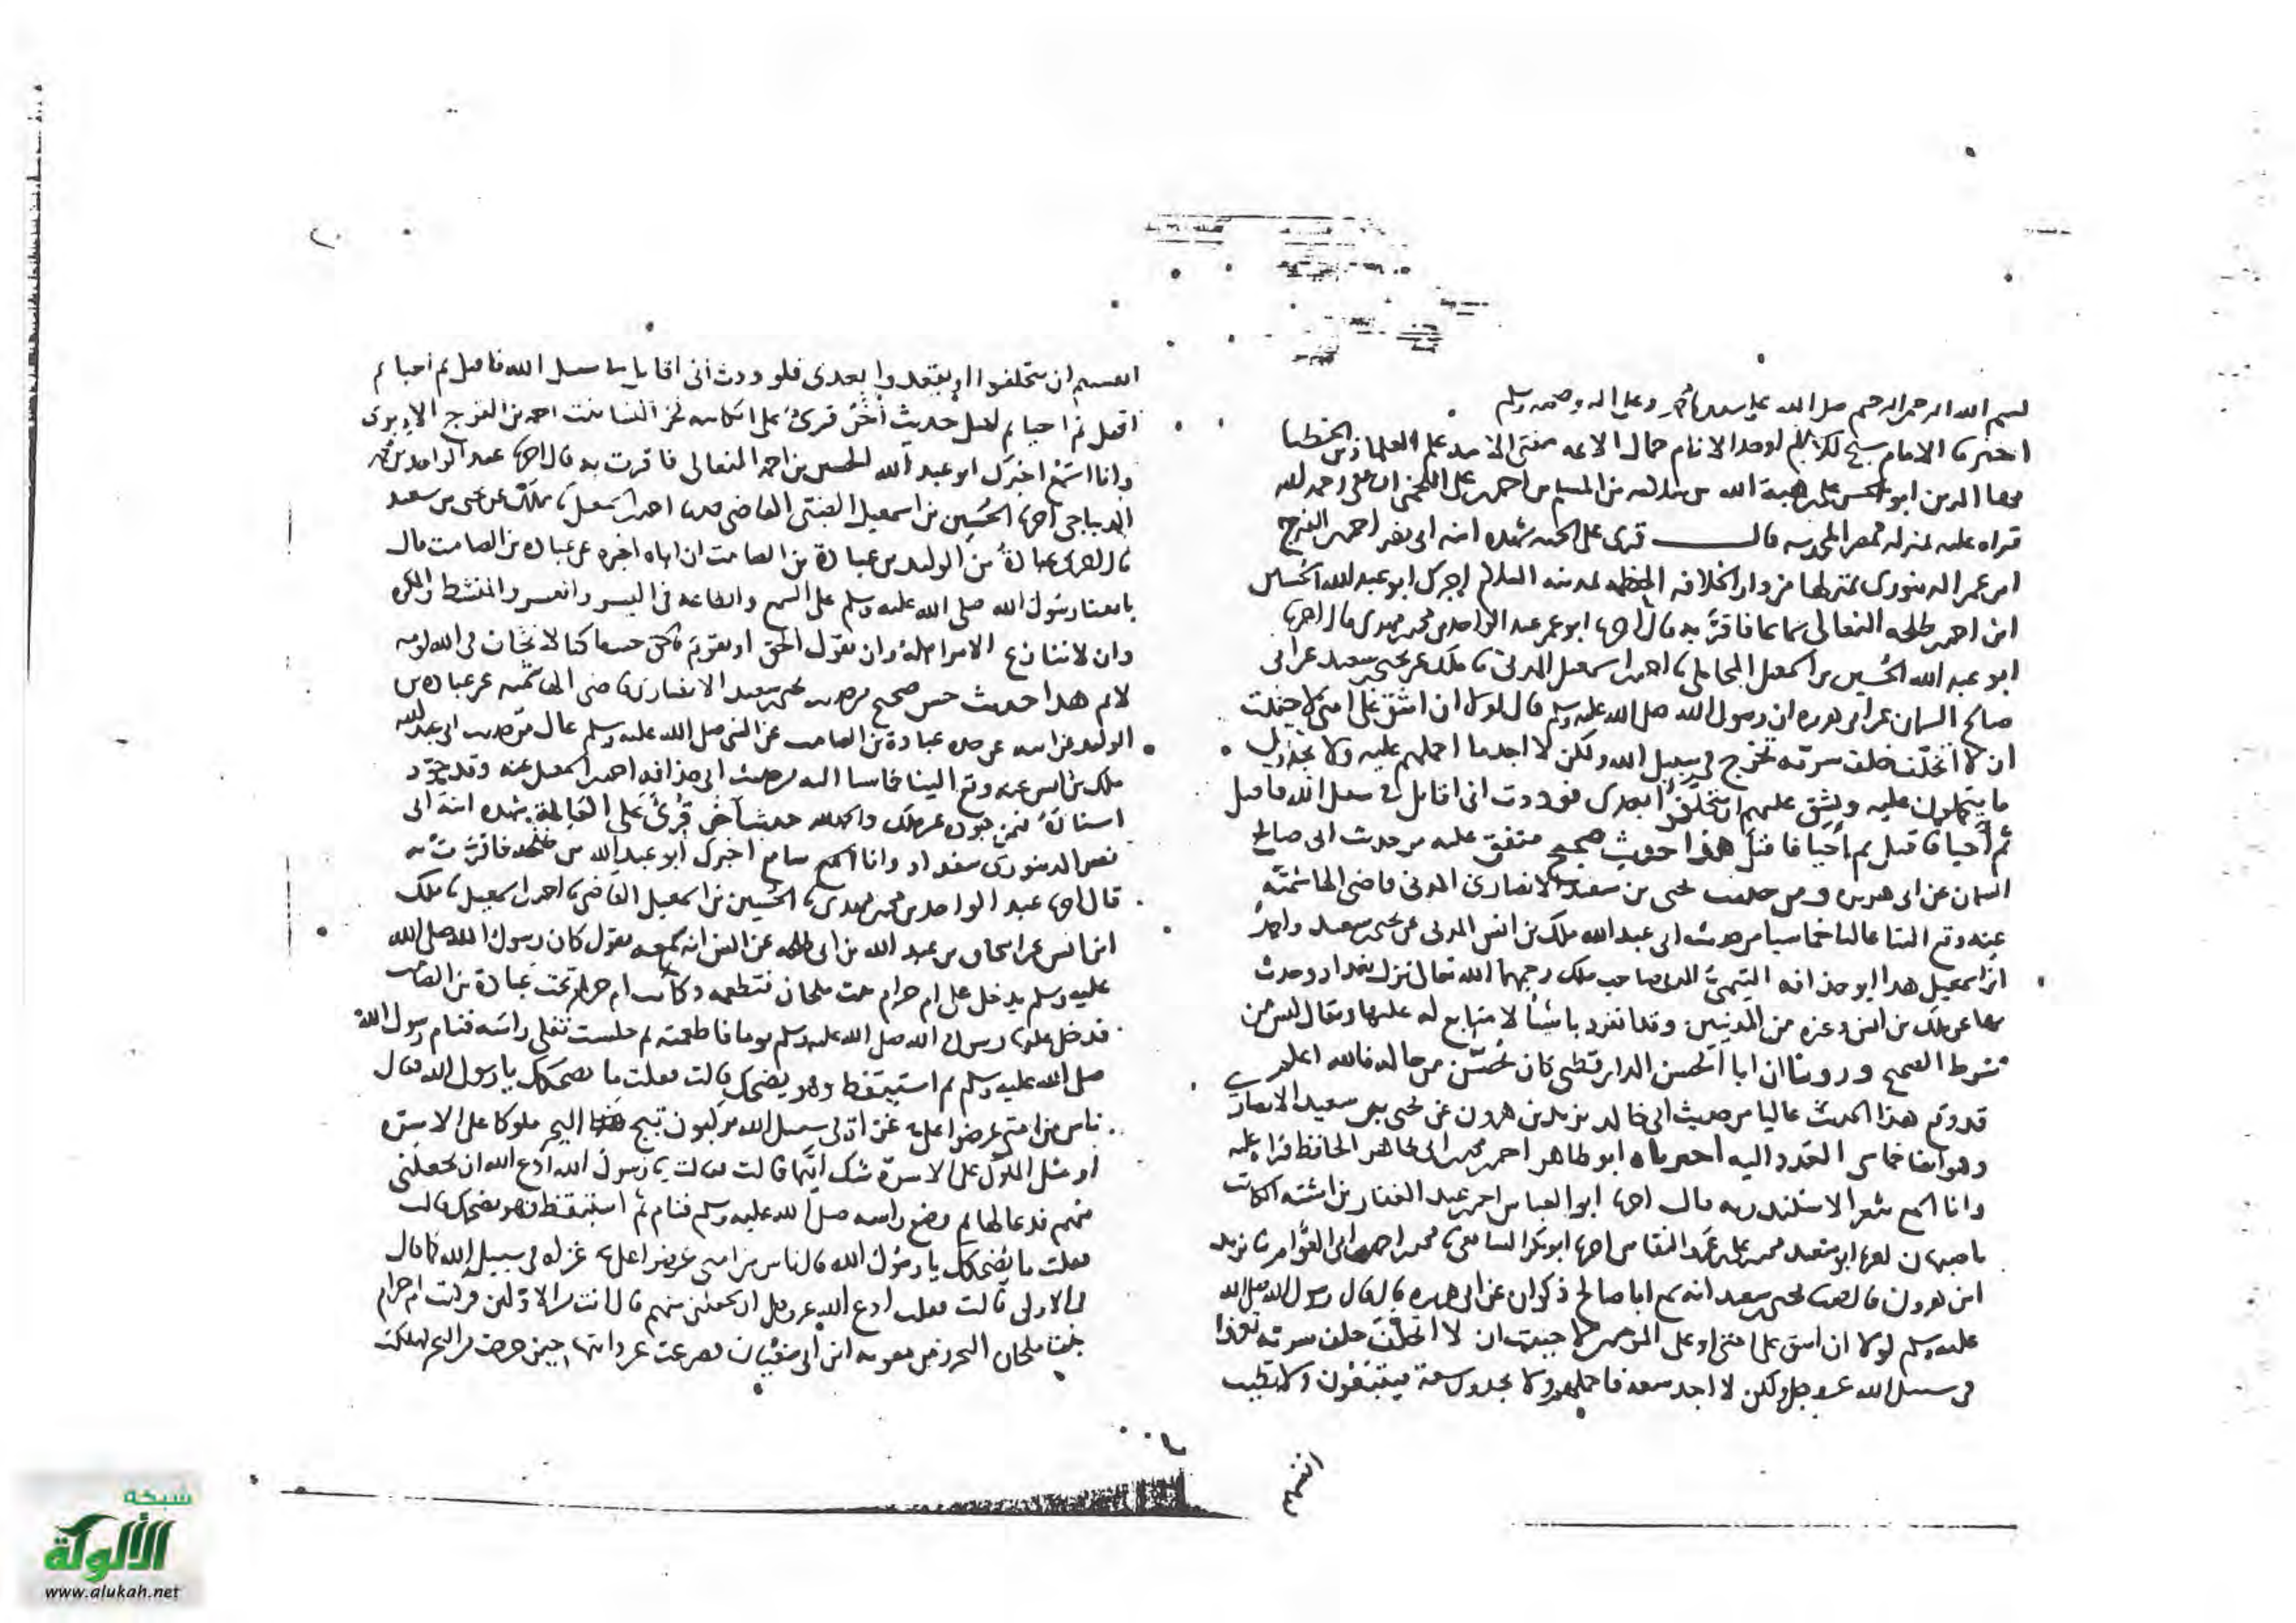 بسم الله الرحمن الرحيم صلى الله على سيدنا محمد وعلى اله وصحبه وسلم
اخبرنا الامام الاوحد الانام جمال الائمة مفتى علم العلماء الخطبا
بها الدين ابو الحسن على بن هبة الله بن سلامه بن المسلم بن احمد بن على اللخمى رحمه الله
قراه عليه بمنزله بمصر المحروسه قال قرى على شهده ابنه ابى نصر احمد بن الفرج
ابن عمر الدينورى بمنزلها من دار الخلافه المعظمه بمدينه السلام اخبرك ابو عبد الله الحسين
ابن احمد بن طلحه النعالى سماعا فاقر به قال اخبرنا ابو عمر عبد الواحد بن محمد بن مهدى قال اخبرنا
ابو عبد الله الحسين بن اسمعيل المحاملى نا احمد بن اسمعيل المدنى نا ملك عن يحيى بن سعيد عن ابى
صالح السمان عن ابى هريره ان رسول الله صلى الله عليه وسلم قال لولا ان اشق على امتى لاحببت
ان لا اتخلف خلف سريه تخرج فى سبيل الله ولكن لا اجد ما احملهم عليه ولا يجدون
ما يتحملون عليه ويشق عليهم ان يتخلفوا بعدى فوددت انى اقاتل فى سبيل الله فاقتل
ثم احيا فاقتل ثم احيا فاقتل هذا حديث صحيح متفق عليه من حديث ابى صالح
السمان عن ابى هريره ومن حديث يحيى بن سعيد الانصارى المدنى قاضى الهاشميه
عنه وقع الينا عاليا خماسيا من حديث ابى عبد الله ملك بن انس المدنى عن يحيى بن سعيد واحمد
ابن اسمعيل هذا ابو حذافه السهمى المدنى صاحب ملك رحمهما الله تعالى نزل بغداد وحدث
بها عن ملك بن انس وغيره من المدنيين وقد انفرد باشيا لا متابع له عليها ويقال ليس من
شرط الصحيح وروينا ان ابا الحسن الدارقطنى كان يحسن من حاله فالله اعلم
قد وقع هذا الحديث عاليا من حديث ابى خالد يزيد بن هرون عن يحيى بن سعيد الانصارى
وهو ايضا خماسى العدد اليه اخبرناه ابو طاهر احمد بن محمد الحافظ قراه عليه
وانا اسمع بثغر الاسكندريه قال اخبرنا ابو العباس احمد بن عبد الغفار بن اشته الكاتب
باصبهان اخبرنا ابو سعيد محمد بن على النقاش اخبرنا ابو بكر الشافعى نا محمد بن احمد بن ابى العوام نا يزيد
ابن هرون قال يحيى بن سعيد انه سمع ابا صالح ذكوان عن ابى هريره قال قال رسول الله صلى الله
عليه وسلم لولا ان اشق على امتى او على المومنين لاحببت ان لا اتخلف خلف سريه تغزوا
فى سبيل الله عز وجل ولكن لا اجد سعه فاحملهم ولا يجدون سعة فيتبعون ولا تطيب
انفسهم
انفسهم ان يتخلفوا او يقعدوا بعدى فلوددت انى اقاتل فى سبيل الله فاقتل ثم احيا ثم
اقتل ثم احيا ثم اقتل حديث اخر قرئ على الكاتبه فخر النسا بنت احمد بن الفرج الابرى
وانا اسمع اخبرك ابو عبد الله الحسين بن احمد النعالى فاقرت به قال اخبرنا عبد الواحد بن محمد
اخبرنا الحسين بن اسمعيل الضبى القاضى نا احمد بن اسمعيل نا ملك عن يحيى بن سعيد
قال اخبرنى عبادة بن الوليد بن عبادة بن الصامت ان اباه اخبره عن عبادة بن الصامت قال
بايعنا رسول الله صلى الله عليه وسلم على السمع والطاعه فى اليسر والعسر والمنشط والمكره
وان لا ننازع الامر اهله وان نقول الحق او نقوم بالحق حيث ما كنا لا نخاف فى الله لومه
لائم هذا حديث حسن صحيح من حديث يحيى بن سعيد الانصارى قاضى الهاشميه عن عباده بن
الوليد عن ابيه عن جده عبادة بن الصامت عن النبى صلى الله عليه وسلم عال من حديث ابى عبد الله
ملك بن انس عنه وقع الينا خماسيا اليه من حديث ابى حذافه احمد بن اسمعيل عنه وقد جود
اسناده فمن عن ملك والحمد لله حديث آخر قرئ على العالمة شهده ابنة ابى
نصر الدينورى ببغداد وانا اسمع اخبرك ابو عبد الله بن طلحه فاقرت به
قال اخبرنا عبد الواحد بن محمد بن مهدى نا الحسين بن اسمعيل القاضى نا احمد بن اسمعيل نا ملك
ابن انس عن اسحاق بن عبد الله بن ابى طلحه عن انس انه سمعه يقول كان رسول الله صلى الله
عليه وسلم يدخل على ام حرام بنت ملحان فتطعمه وكانت ام حرام تحت عبادة بن الصامت
فدخل عليها رسول الله صلى الله عليه وسلم يوما فاطعمته ثم جلست تفلى راسه فنام رسول الله
صلى الله عليه وسلم ثم استيقظ وهو يضحك قالت فقلت ما يضحكك يا رسول الله فقال
ناس من امتى عرضوا على غزاة فى سبيل الله يركبون ثبج هذا البحر ملوكا على الاسره
او مثل الملوك على الاسرة شك ايهما قالت فقالت يا رسول الله ادع الله ان يجعلنى
منهم فدعا لها ثم وضع راسه صلى الله عليه وسلم فنام ثم استيقظ فهو يضحك قالت
فقلت ما يضحكك يا رسول الله قال ناس من امتى عرضوا على غزاه فى سبيل الله كما قال
فى الاولى قالت فقلت ادع الله عز وجل ان يجعلنى منهم قال انت من الاولين فركبت ام حرام
بنت ملحان البحر زمن معويه ابن ابى سفيان فصرعت عن دابتها حين خرجت من البحر فهلكت
شبكة
الألوكة
www.alukah.net